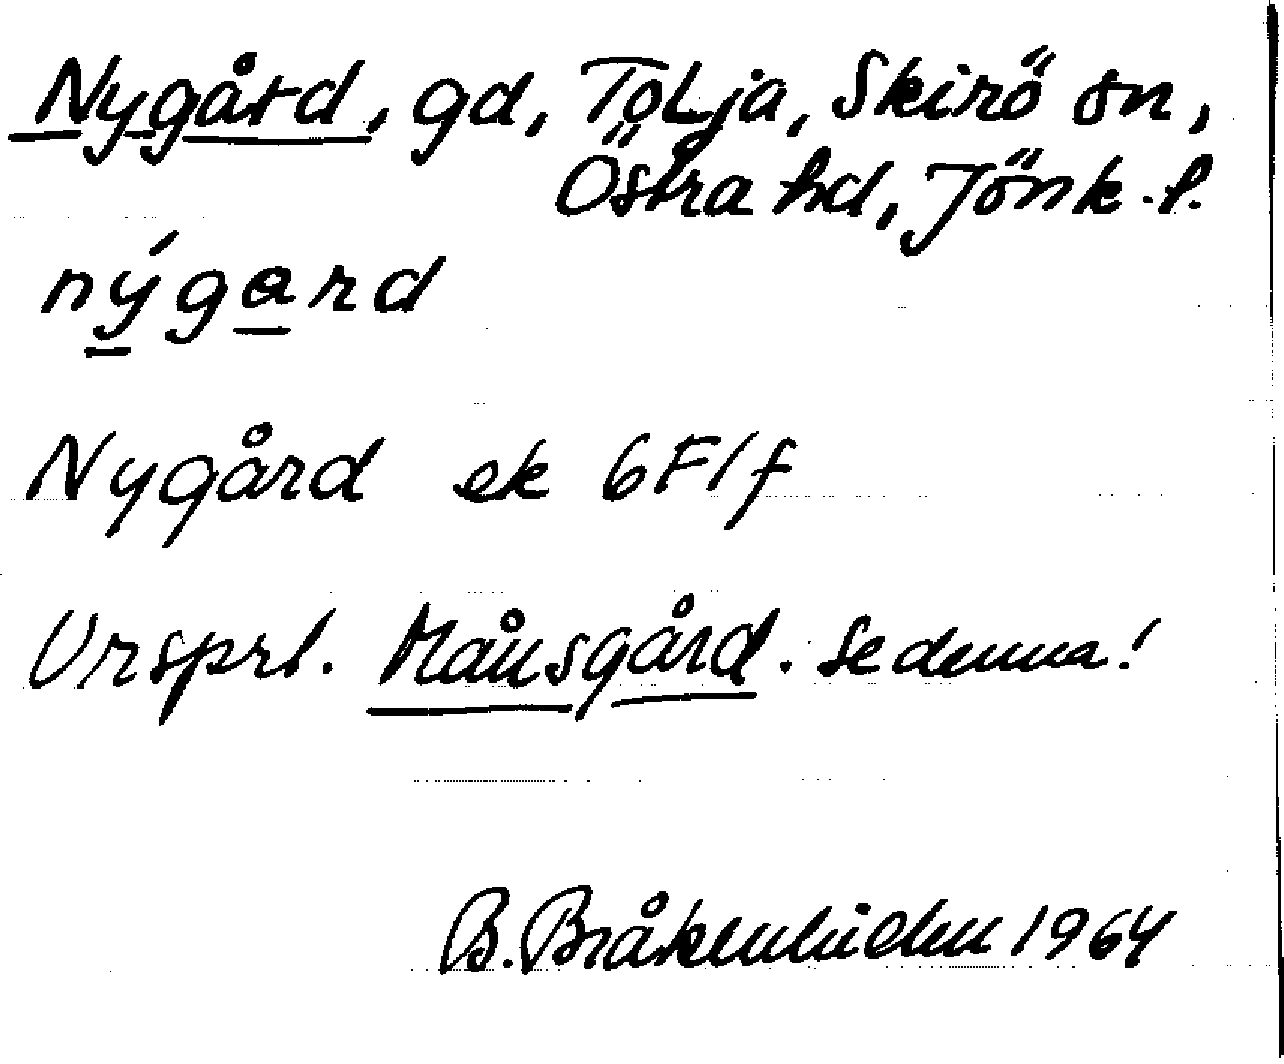 Nygård, gd, Tolja, Skirö sn,
Östra hd, Jönk.l.
nýgard
Nygård ek 6F1f
Ursprl. Månsgård. Se denna!
B. Bråkenhielm 1964